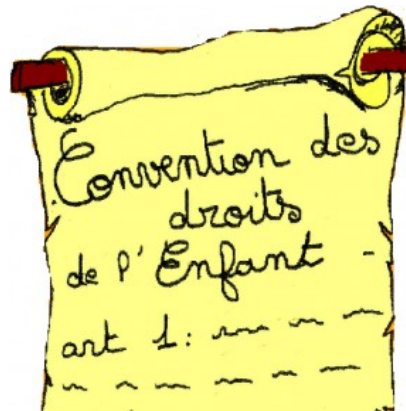 Convention des
droits
de l'Enfant -
art 1: